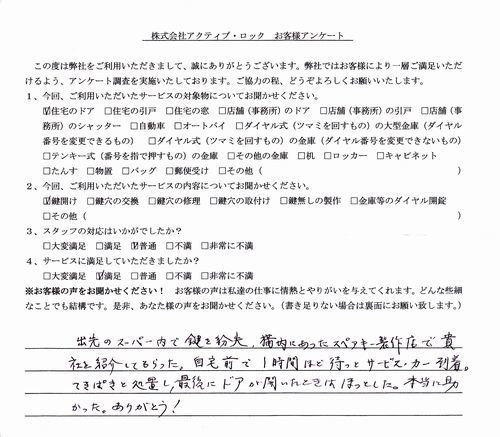 株式会社アクティブ・ロック　お客様アンケート
この度は弊社をご利用いただきまして、誠にありがとうございます。弊社ではお客様により一層ご満足いただ
けるよう、アンケート調査を実施いたしております。ご協力の程、どうぞよろしくお願いいたします。
1、今回、ご利用いただいたサービスの対象物についてお聞かせください。
☑住宅のドア　□住宅の引戸　□住宅の窓　□店舗(事務所)のドア　□店舗(事務所)の引戸　□店舗(事
務所)のシャッター　□自動車　□オートバイ　□ダイヤル式(ツマミを回すもの)の大型金庫(ダイヤル
番号を変更できるもの)　□ダイヤル式(ツマミを回すもの)の金庫(ダイヤル番号を変更できないもの)
□テンキー式(番号を指で押すもの)の金庫　□その他の金庫　□机　□ロッカー　□キャビネット
□たんす　□物置　□バッグ　□郵便受け　□その他(　)
2、今回、ご利用いただいたサービスの内容についてお聞かせください。
☑鍵開け　□鍵穴の交換　□鍵穴の修理　□鍵穴の取付け　□鍵無しの製作　□金庫等のダイヤル開錠
□その他(　)
3、スタッフの対応はいかがでしたか？
□大変満足　□満足　☑普通　□不満　□非常に不満
4、サービスに満足していただきましたか？
□大変満足　☑満足　□普通　□不満　□非常に不満
※お客様の声をお聞かせください！　お客様の声は私達の仕事に情熱とやりがいを与えてくれます。どんな些細
なことでも結構です。是非、あなた様の声をお聞かせください。(書き足りない場合は裏面にお願い致します。)
出先のスーパー内で鍵を紛失、構内にあったスペアキー製作店で貴
社を紹介してもらった。自宅前で1時間ほど待つとサービス・カー到着。
てきぱきと処置し、最後にドアが開いたときはほっとした。本当に助
かった。ありがとう！